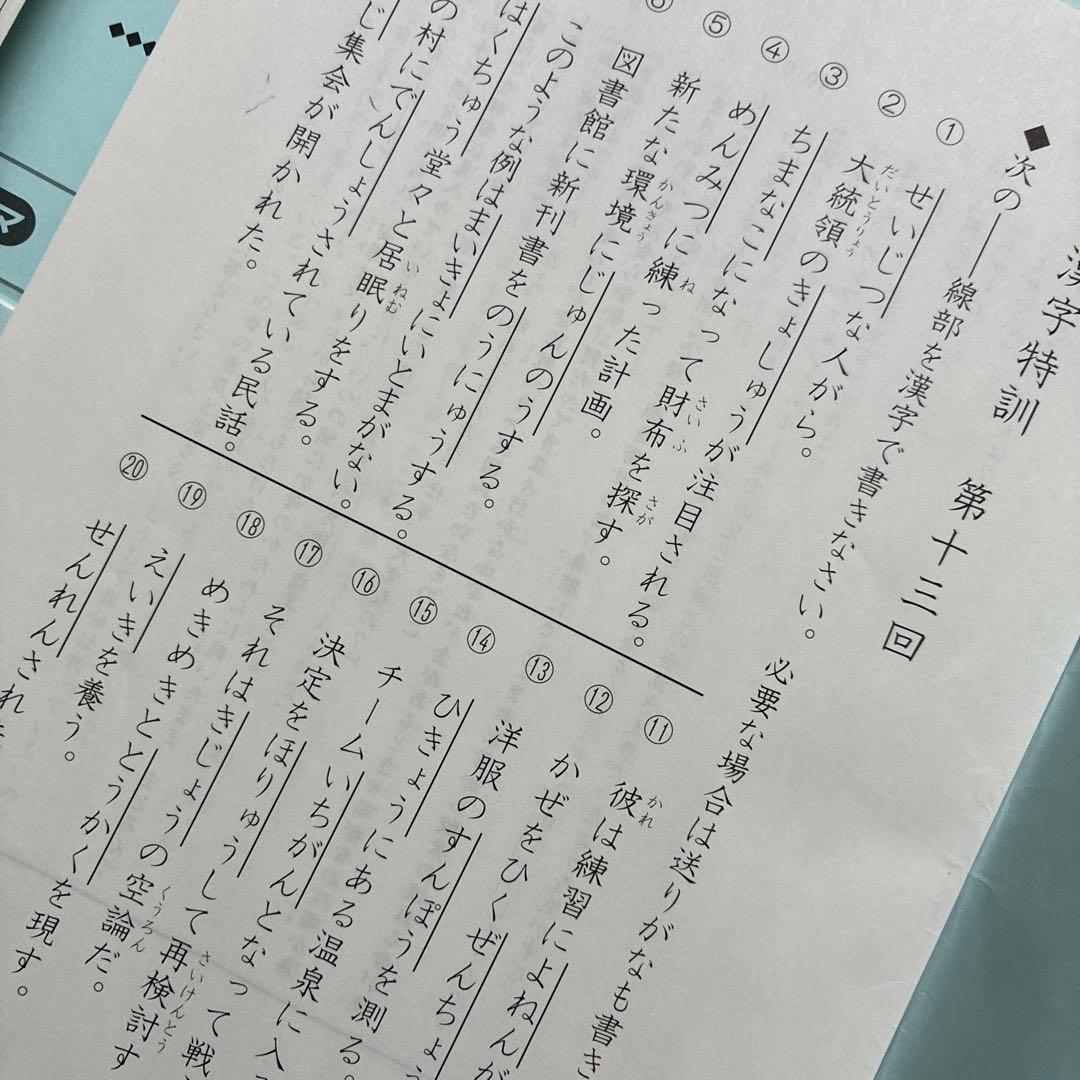 漢字特訓 第十三回
◆次の――線部を漢字で書きなさい。必要な場合は送りがなも書き
①せいじつな人がら。
②大統領のきょしゅうが注目される。
だいとうりょう
③ちまなこになって財布を探す。
さいふ さが
④めんみつに練った計画。
ね
⑤新たな環境にじゅんのうする。
かんきょう
⑥図書館に新刊書をのうにゅうする。
このような例はまいきょにいとまがない。
はくちゅう堂々と居眠りをする。
いねむ
の村にでんしょうされている民話。
じ集会が開かれた。
⑪彼は練習によねんが
かれ
⑫かぜをひくぜんちょう
⑬洋服のすんぽうを測る。
⑭ひきょうにある温泉に入
⑮チームいちがんとなって戦
⑯決定をほりゅうして再検討す
さいけんとう
⑰それはきじょうの空論だ。
くうろん
⑱めきめきととうかくを現す。
⑲えいきを養う。
⑳せんれんされ